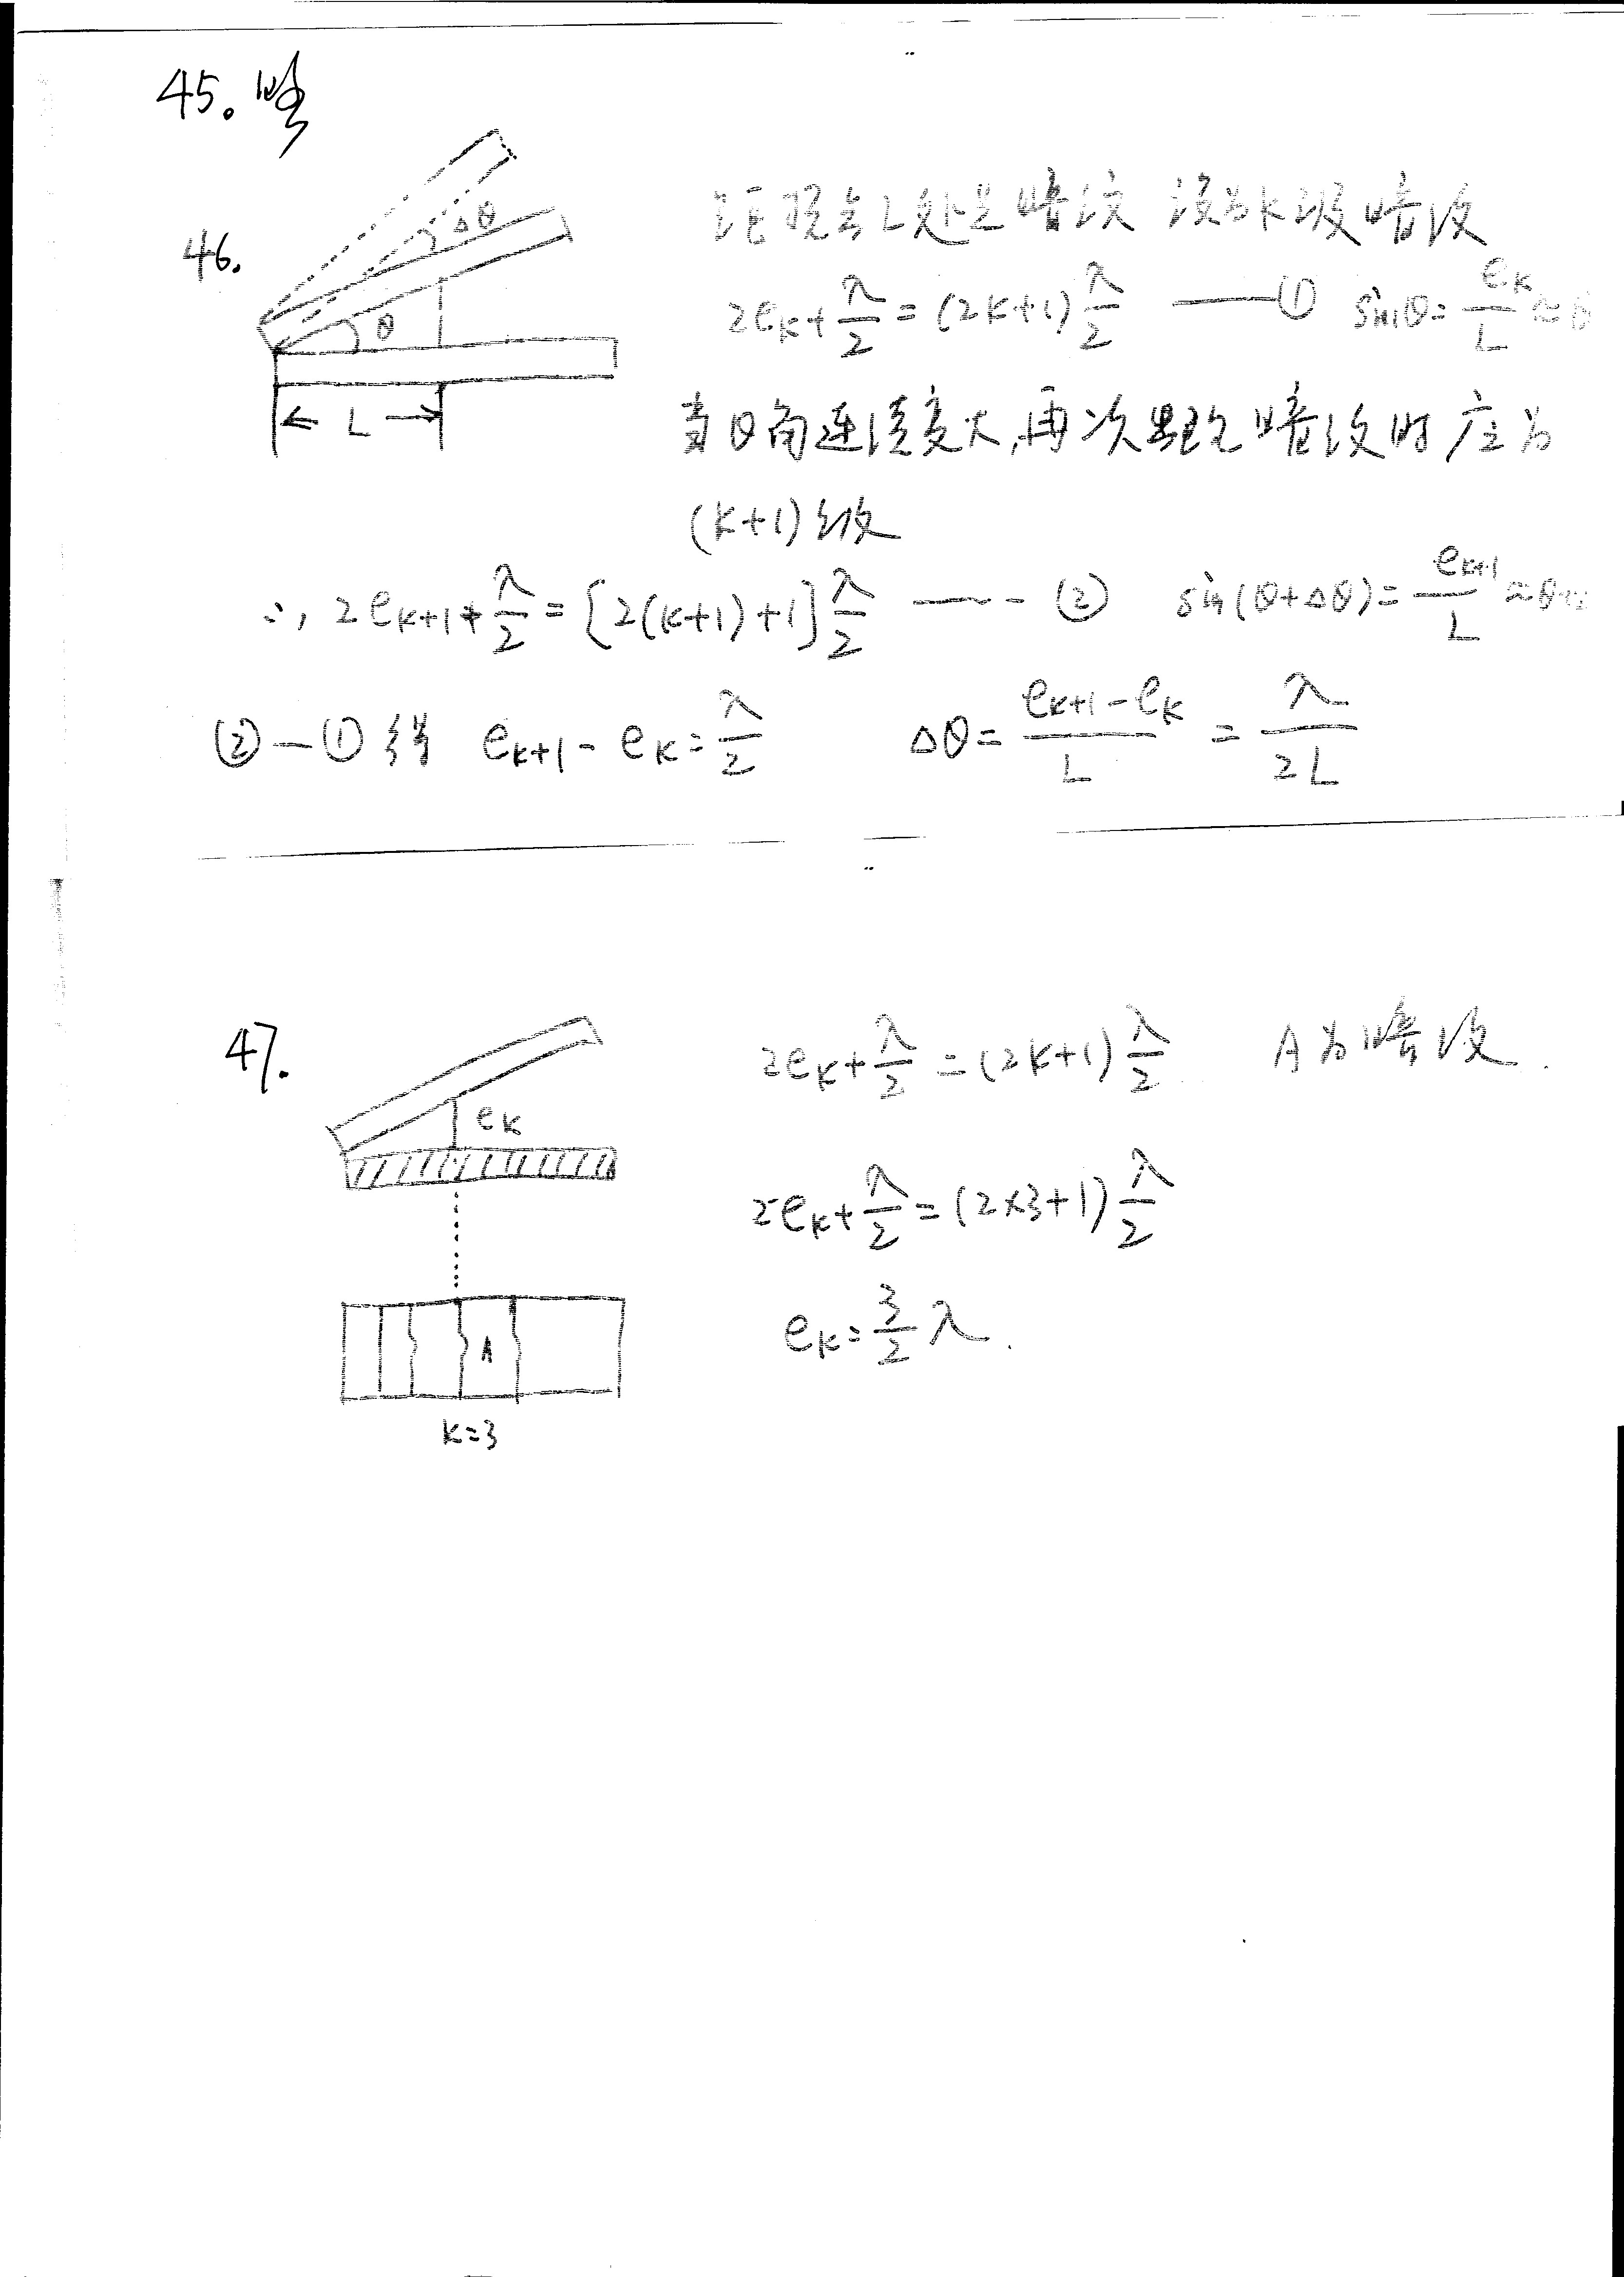 45. 暗
46.
Δθ
θ
← L →
距顶点L处是暗纹 设为k级暗纹
2eₖ + λ/2 = (2k+1) λ/2 —— ① sinθ = eₖ/L ≈ θ
当θ角连续变大,再次出现暗纹时应为
(k+1)级
∴, 2eₖ₊₁ + λ/2 = [2(k+1)+1] λ/2 —— ② sin(θ+Δθ) = eₖ₊₁/L ≈
② — ① 得 eₖ₊₁ - eₖ = λ/2 Δθ = (eₖ₊₁ - eₖ)/L = λ/2L
47.
eₖ
A
k=3
2eₖ + λ/2 = (2k+1) λ/2 A为暗纹.
2eₖ + λ/2 = (2×3+1) λ/2
eₖ = 3/2 λ.